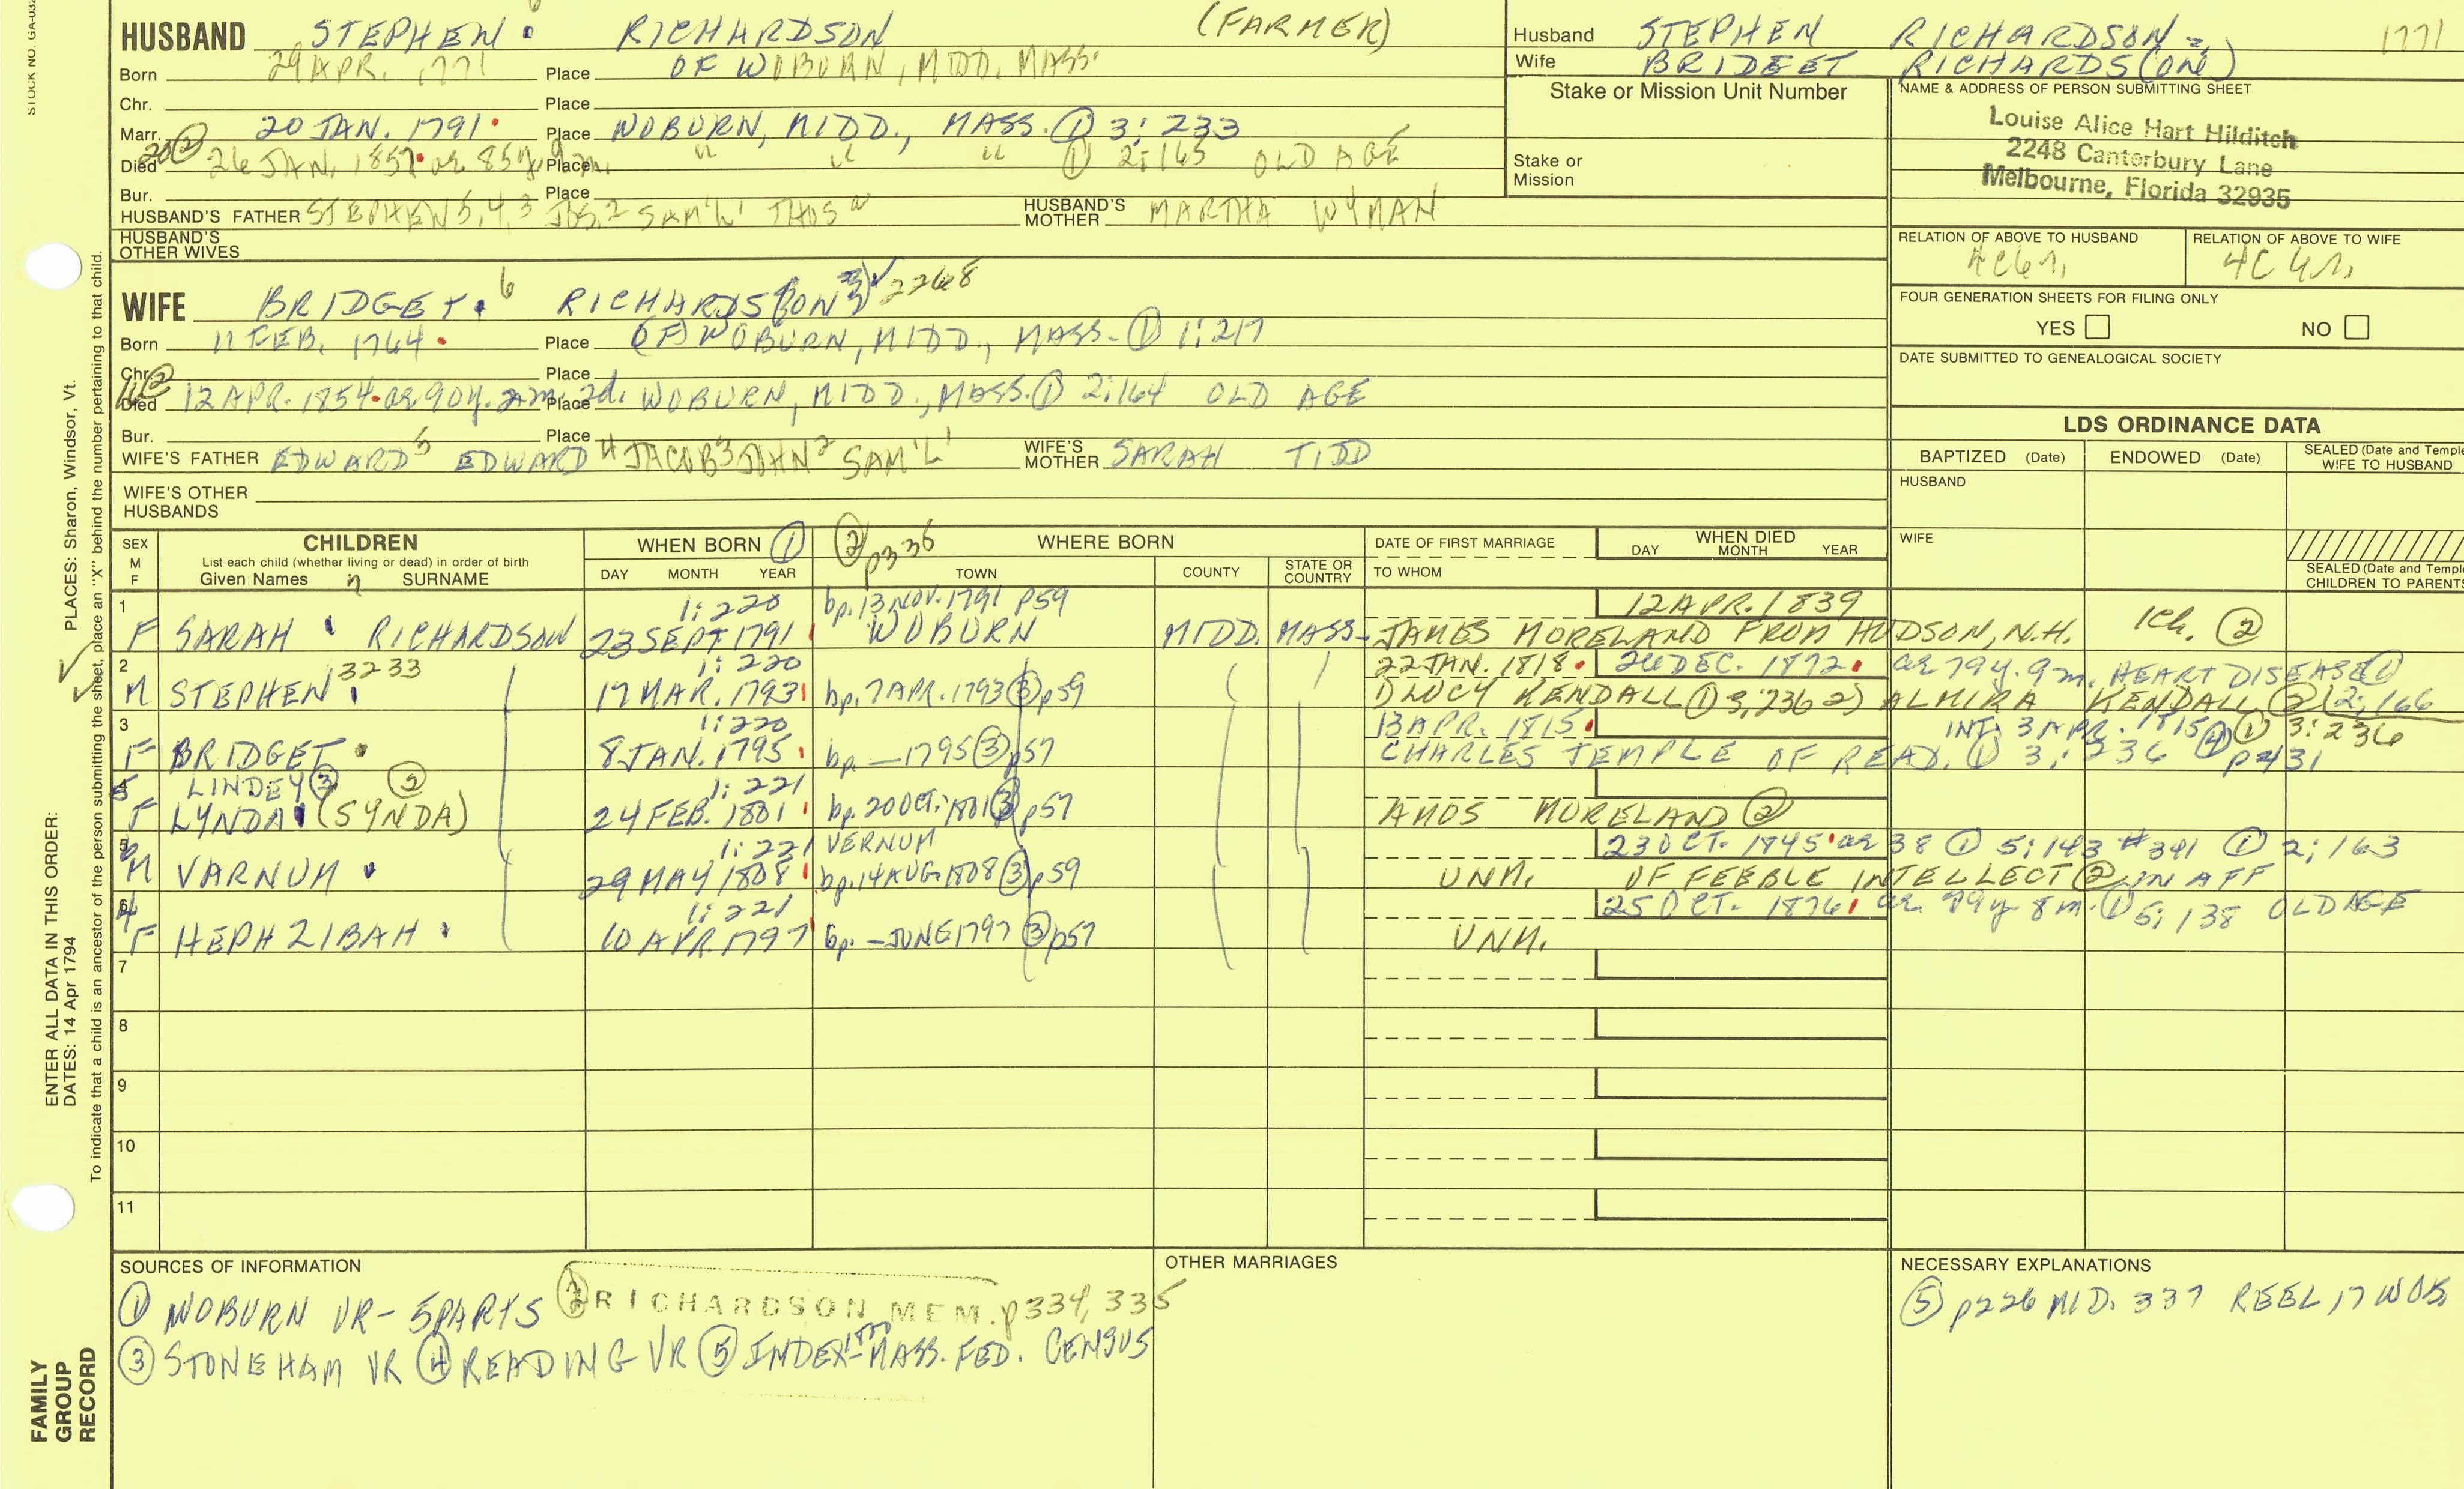 STOCK NO. GA-03
HUSBAND STEPHEN 6 RICHARDSON (FARMER)
Born 29 APR. 1771 Place OF WOBURN, MIDD. MASS.
Chr. Place
Marr. 20 JAN. 1791 Place WOBURN, MIDD., MASS. ① 3:233
Died 20② 26 JAN. 1857 ae 85y. 9m. Place " " " ① 2:165 OLD AGE
Bur. Place
HUSBAND'S FATHER STEPHEN 5,4,3 JOS.2 SAM'L1 THOS a HUSBAND'S MOTHER MARTHA WYMAN
HUSBAND'S OTHER WIVES
WIFE BRIDGET 6 RICHARDS(ON) 2268
Born 11 FEB. 1764 Place (OF) WOBURN, MIDD., MASS. ① 1:217
Chr. Place
Died 12 APR. 1854 ae 90y. 2m. 2d. Place WOBURN, MIDD., MASS. ① 2:164 OLD AGE
Bur. Place
WIFE'S FATHER EDWARD5 EDWARD4 JACOB3 JOHN2 SAM'L1 WIFE'S MOTHER SARAH TIDD
WIFE'S OTHER HUSBANDS
Husband STEPHEN RICHARDSON 1771
Wife BRIDEET RICHARDS(ON)
Stake or Mission Unit Number
Stake or Mission
NAME & ADDRESS OF PERSON SUBMITTING SHEET
Louise Alice Hart Hilditch
2248 Canterbury Lane
Melbourne, Florida 32935
RELATION OF ABOVE TO HUSBAND RELATION OF ABOVE TO WIFE
4C6r. 4C4r.
FOUR GENERATION SHEETS FOR FILING ONLY
YES NO
DATE SUBMITTED TO GENEALOGICAL SOCIETY
LDS ORDINANCE DATA
BAPTIZED (Date) ENDOWED (Date) SEALED (Date and Temple) WIFE TO HUSBAND
HUSBAND
WIFE
SEALED (Date and Temple) CHILDREN TO PARENTS
SEX M F
CHILDREN
List each child (whether living or dead) in order of birth
Given Names 7 SURNAME
WHEN BORN ①
DAY MONTH YEAR
② p335 WHERE BORN
TOWN COUNTY STATE OR COUNTRY
DATE OF FIRST MARRIAGE
TO WHOM
WHEN DIED
DAY MONTH YEAR
1 1:220 bp. 13 NOV. 1791 p59 12 APR. 1839
F SARAH RICHARDSON 23 SEPT 1791 WOBURN MIDD. MASS. JAMES MORELAND FROM HUDSON, N.H. 1Ch. ②
2 3233 1:220 22 JAN. 1818 26 DEC. 1872 ae 79y. 9m. HEART DISEASE ①
M STEPHEN 17 MAR. 1793 bp. 7 APR. 1793 ③ p59 1) LUCY KENDALL ① 3:236 2) ALMIRA KENDALL ② 2:166
3 1:220 13 APR. 1815 INT. 3 APR. 1815 ① 3:236
F BRIDGET 8 JAN. 1795 bp. — 1795 ③ p57 CHARLES TEMPLE OF READ. ① 3:236 ④ p431
5 LINDEY ③ ② 1:221
F LYNDA (SYNDA) 24 FEB. 1801 bp. 20 OCT. 1801 ③ p57 AMOS MORELAND ②
6 1:221 VERNUM 23 OCT. 1845 ae 38 ① 5:143 #391 ① 2:163
M VARNUM 29 MAY 1808 bp. 14 AUG 1808 ③ p59 UNM. OF FEEBLE INTELLECT ② IN AFF
4 1:221 25 OCT. 1876 ae 79y 8m. ① 5:138 OLD AGE
F HEPHZIBAH 10 APR. 1797 bp. — JUNE 1797 ③ p57 UNM.
7
8
9
10
11
SOURCES OF INFORMATION
① WOBURN VR - 5 PARTS ② RICHARDSON MEM. p334, 335
③ STONEHAM VR ④ READING VR ⑤ INDEX - 1800 MASS. FED. CENSUS
OTHER MARRIAGES
NECESSARY EXPLANATIONS
⑤ p226 MID. 337 REEL 17 WOB.
PLACES: Sharon, Windsor, Vt.
ENTER ALL DATA IN THIS ORDER:
DATES: 14 Apr 1794
To indicate that a child is an ancestor of the person submitting the sheet, place an "X" behind the number pertaining to that child.
FAMILY GROUP RECORD